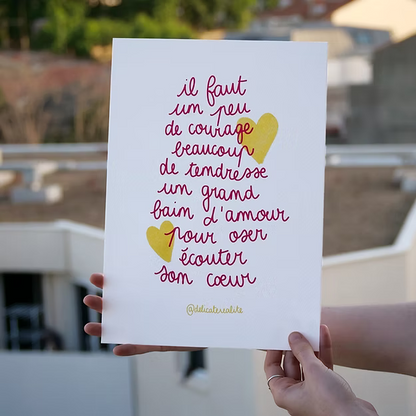 il faut
un peu
de courage
beaucoup
de tendresse
un grand
bain d'amour
pour oser
écouter
son cœur